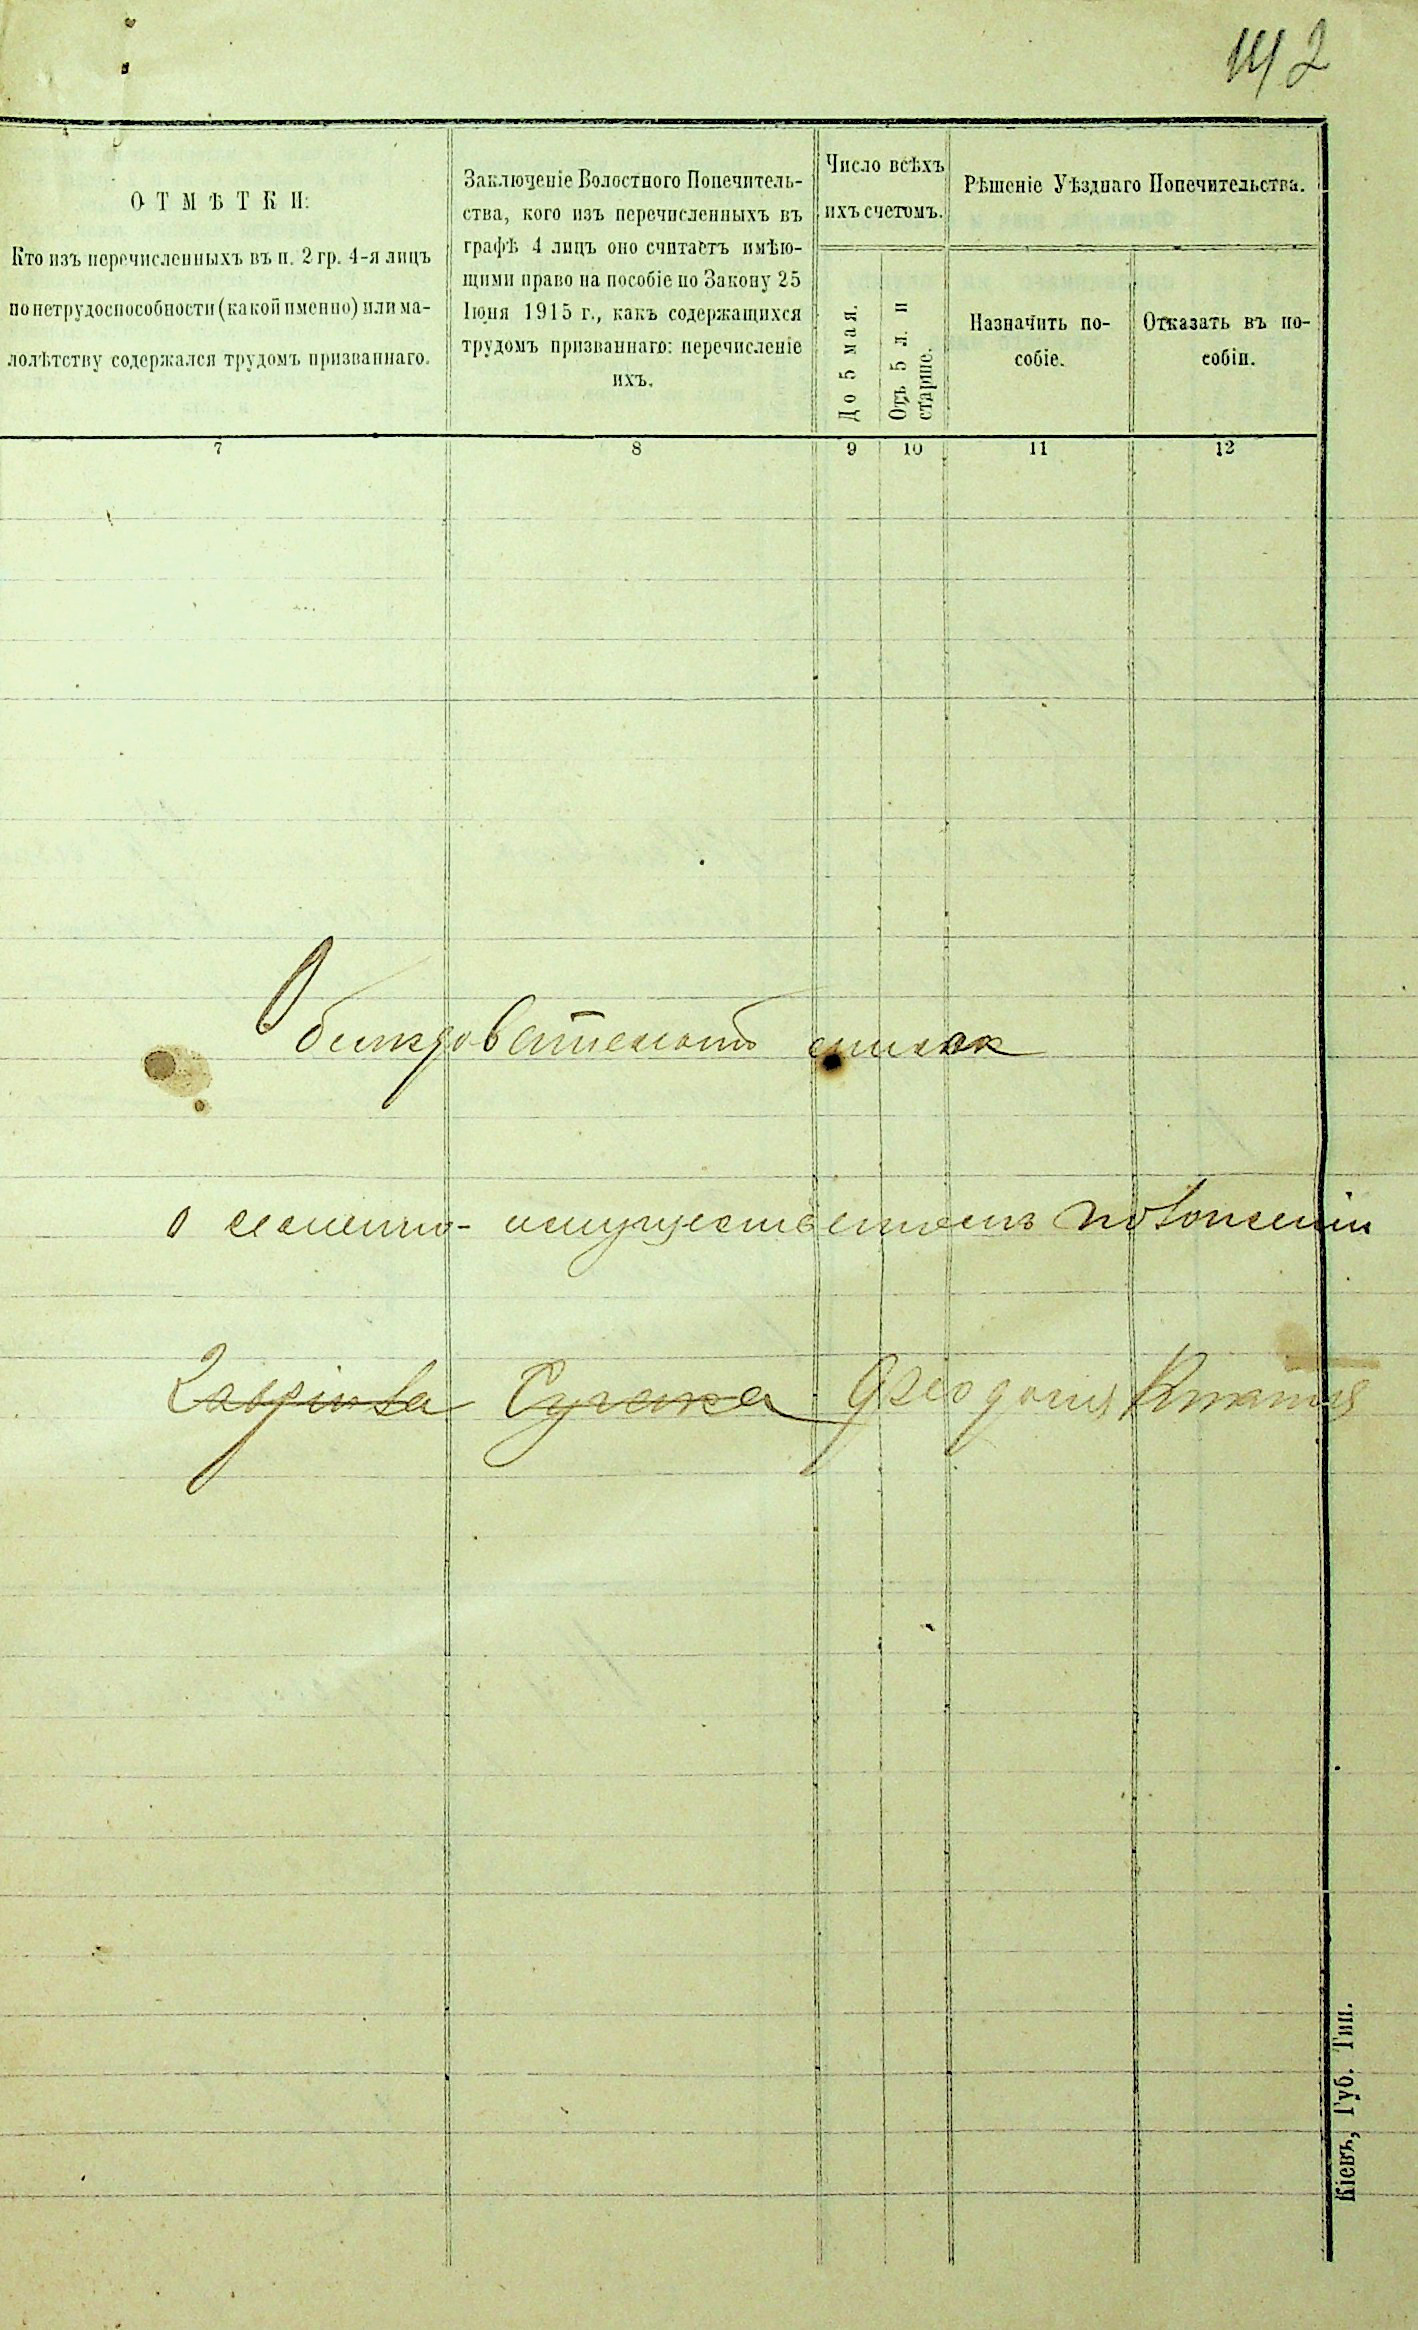 142
О Т М Ѣ Т К И:
Кто изъ перечисленныхъ въ п. 2 гр. 4-я лицъ
по нетрудоспособности (какой именно) или ма-
лолѣтству содержался трудомъ призваннаго.
Заключеніе Волостного Попечитель-
ства, кого изъ перечисленныхъ въ
графѣ 4 лицъ оно считаетъ имѣю-
щими право на пособіе по Закону 25
Іюня 1915 г., какъ содержащихся
трудомъ призваннаго: перечисленіе
ихъ.
Число всѣхъ
ихъ счетомъ.
До 5 мая.
Отъ 5 л. и
старше.
Рѣшеніе Уѣзднаго Попечительства.
Назначить по-
собіе.
Отказать въ по-
собіи.
7 8 9 10 11 12
список
о семейно-имущественномъ положеніи
Кіевъ, Губ. Тип.